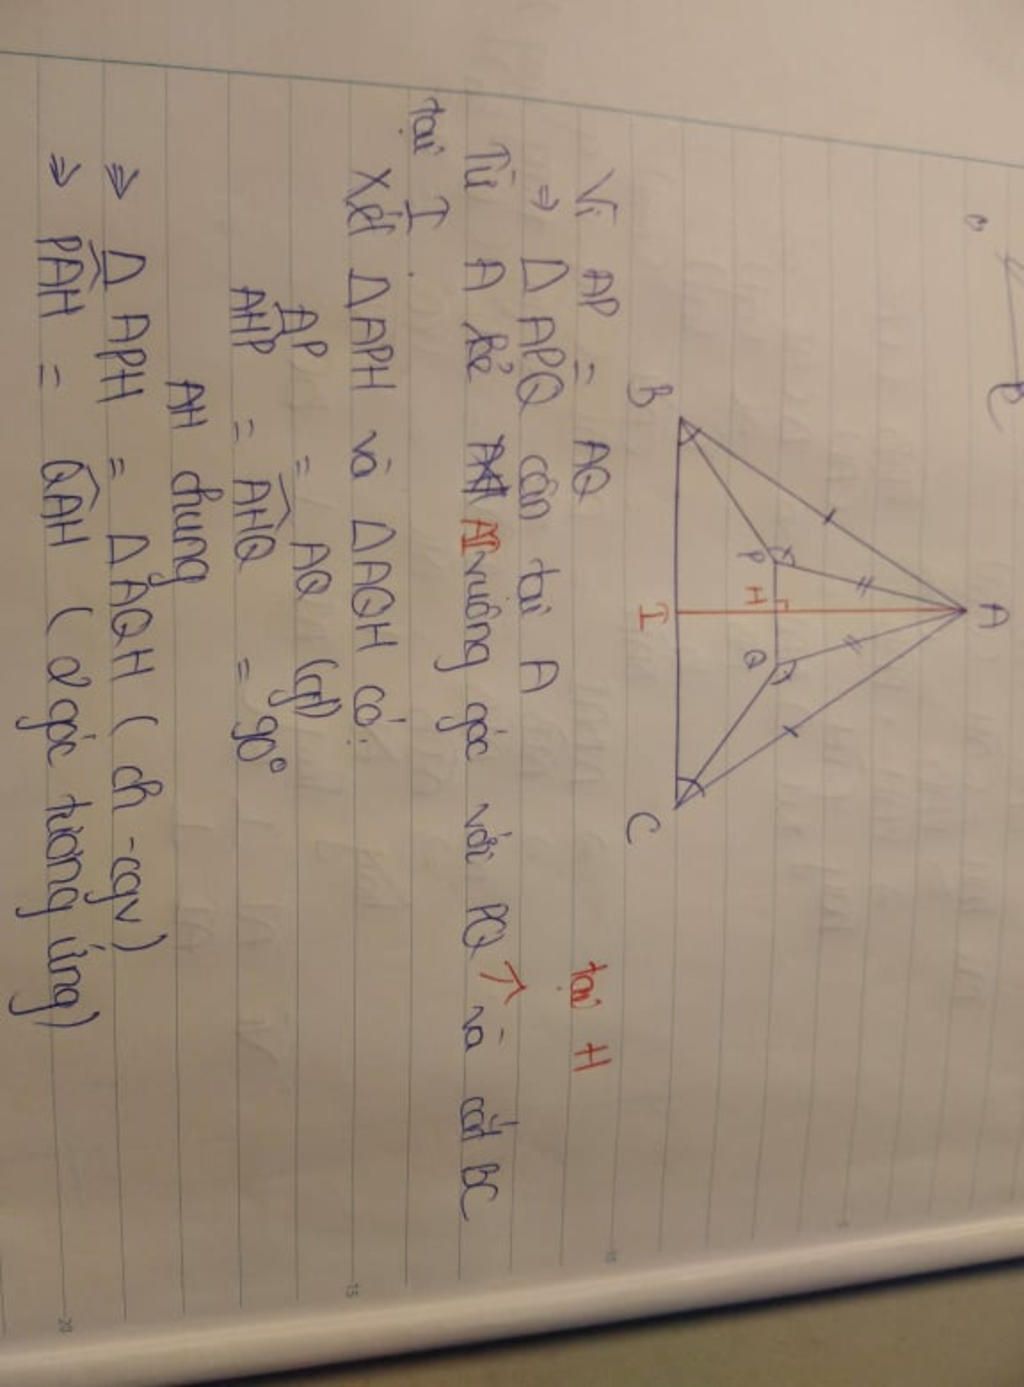 A
B
P
H
Q
I
C
Vì AP = AQ
⇒ Δ APQ cân tại A
tại H
Từ A kẻ AI vuông góc với PQ và cắt BC
tại I.
Xét ΔAPH và ΔAQH có:
AP = AQ (gt)
AHP = AHQ = 90°
AH chung
⇒ Δ APH = Δ AQH ( ch - cgv)
⇒ PAH = QAH ( 2 góc tương ứng)
5
10
15
20